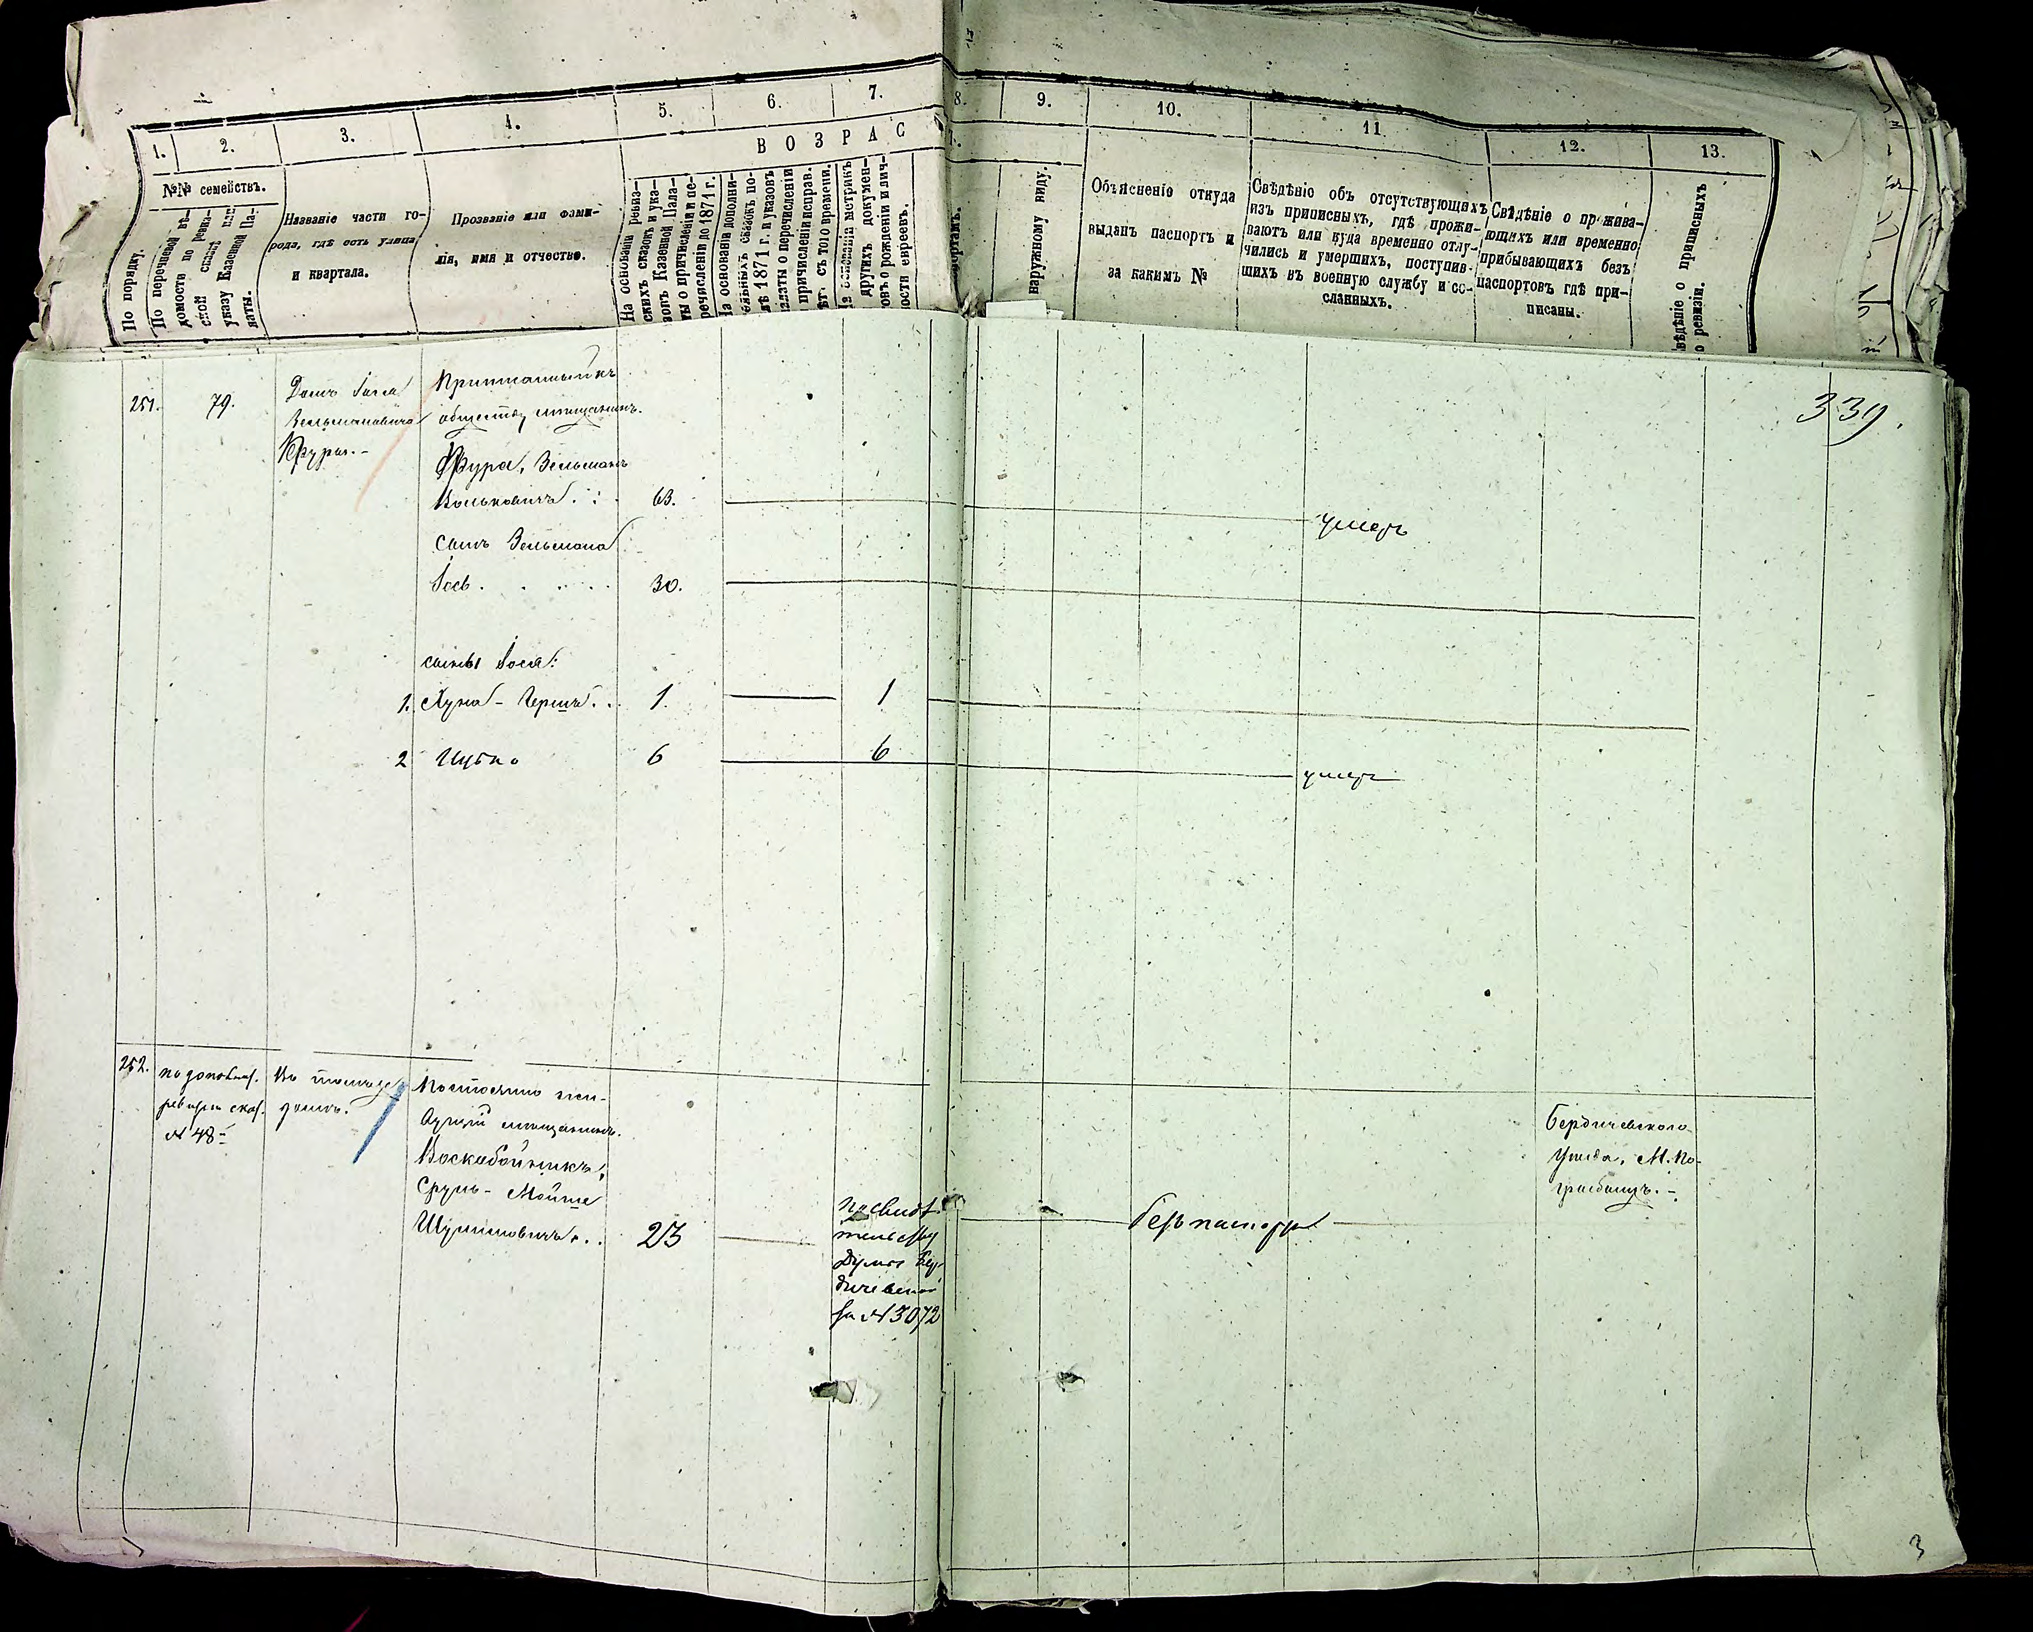 1.
2.
3.
4.
5.
6.
7.
8.
9.
10.
11
12.
13.
ВОЗРАС
№№ семействъ.
По порядку.
По перечневой вѣ-
домости по ревиз-
ской сказкѣ или
указу Казенной Па-
латы.
Названіе части го-
рода, гдѣ есть улица
и квартала.
Прозваніе или фами-
лія, имя и отчество.
На основаніи ревиз-
скихъ сказокъ и ука-
зовъ Казенной Пала-
ты о причисленіи и пе-
речисленіи до 1871 г.
На основаніи дополни-
ельныхъ сказокъ по-
лѣ 1871 г. и указовъ
алаты о перечисленіи
причисленіи исправ.
ѣт. съ того времени.
На основаніи метрикъ
другихъ докумен-
овъ о рожденіи и лич-
ости евреевъ.
наружному виду.
Объясненіе откуда
выданъ паспортъ и
за какимъ №
Свѣдѣніе объ отсутствующихъ
изъ приписныхъ, гдѣ прожи-
ваютъ или куда временно отлу-
чились и умершихъ, поступив-
шихъ въ военную службу и со-
сланныхъ.
Свѣдѣніе о прожива-
ющихъ или временно
прибывающихъ безъ
паспортовъ гдѣ при-
писаны.
вѣдѣніе о приписныхъ
о ревизіи.
339.
251.
79.
Домъ Іося
Зельмановича
обществу мѣщанинъ.
Зельманъ
Вольковичъ
63.
умеръ
сынъ Зельмана
Іось
30.
сыны Іося:
1.
Герш
1.
1
2
6
6
умеръ
252.
№ 48
домъ.
Постоянно жи-
вущій мѣщанинъ
Воскобойникъ,
Сруль-Мойше
Шулимовичъ
23
По свидѣ-
тельству
Думы Бер-
дичевской
за № 3072
безъ паспорта
Бердичевского
Уѣзда, М. По-
гребищъ.
3